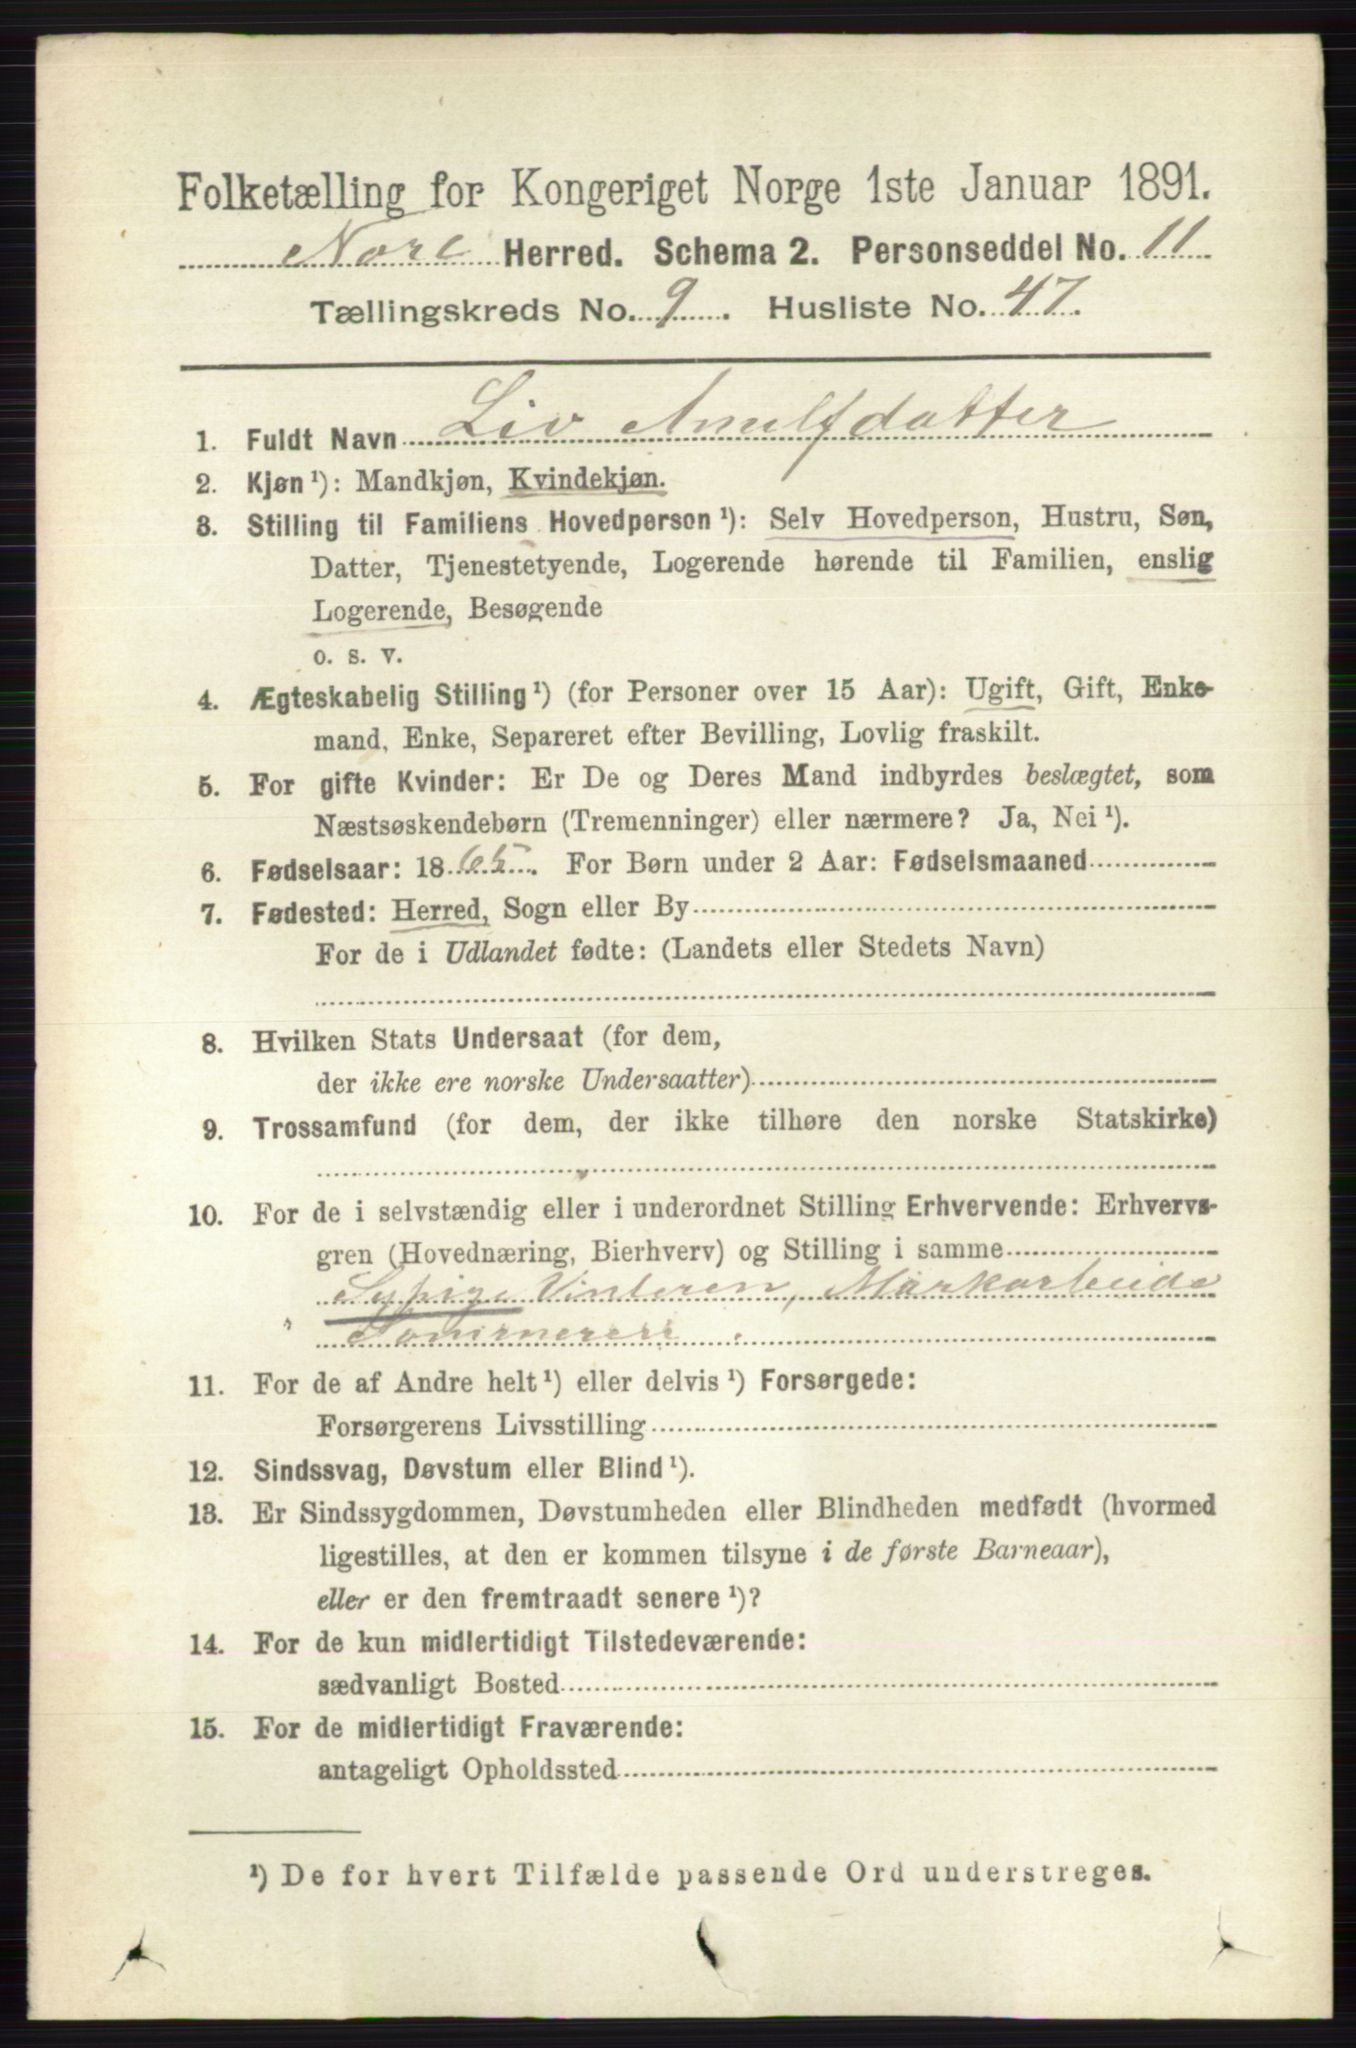 Folketælling for Kongeriget Norge 1ste Januar 1891.
Nore Herred. Schema 2. Personseddel No. 11
Tællingskreds No. 9. Husliste No. 47.
1. Fuldt Navn Liv Arnulfdatter
2. Kjøn ¹): Mandkjøn, Kvindekjøn.
3. Stilling til Familiens Hovedperson ¹): Selv Hovedperson, Hustru, Søn,
Datter, Tjenestetyende, Logerende hørende til Familien, enslig
Logerende, Besøgende
o. s. v.
4. Ægteskabelig Stilling ¹) (for Personer over 15 Aar): Ugift, Gift, Enke-
mand, Enke, Separeret efter Bevilling, Lovlig fraskilt.
5. For gifte Kvinder: Er De og Deres Mand indbyrdes beslægtet, som
Næstsøskendebørn (Tremenninger) eller nærmere? Ja, Nei ¹).
6. Fødselsaar: 1865. For Børn under 2 Aar: Fødselsmaaned
7. Fødested: Herred, Sogn eller By
For de i Udlandet fødte: (Landets eller Stedets Navn)
8. Hvilken Stats Undersaat (for dem,
der ikke ere norske Undersaatter)
9. Trossamfund (for dem, der ikke tilhøre den norske Statskirke)
10. For de i selvstændig eller i underordnet Stilling Erhvervende: Erhvervs-
gren (Hovednæring, Bierhverv) og Stilling i samme
Sypige Vinteren, Markarbeide
Sommeren.
11. For de af Andre helt ¹) eller delvis ¹) Forsørgede:
Forsørgerens Livsstilling
12. Sindssvag, Døvstum eller Blind ¹).
13. Er Sindssygdommen, Døvstumheden eller Blindheden medfødt (hvormed
ligestilles, at den er kommen tilsyne i de første Barneaar),
eller er den fremtraadt senere ¹)?
14. For de kun midlertidigt Tilstedeværende:
sædvanligt Bosted
15. For de midlertidigt Fraværende:
antageligt Opholdssted
¹) De for hvert Tilfælde passende Ord understreges.